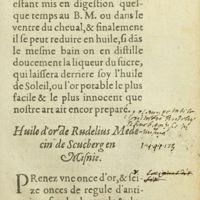 estant mis en digestion quel-
que temps au B. M. ou dans le
ventre du cheual, & finalement
il se peut reduire en huile, si dās
le mesme bain on en distille
doucement la liqueur du sucre,
qui laissera derriere soy l'huile
de Soleil, ou l'or potable le plus
facile & le plus innocent que
nostre art ait encor preparé.
Huile d'or de Rudelius Mede-
cin de Scueberg en
Misnie.
PRenez vne once d'or, & sei-
ze onces de regule d'anti-